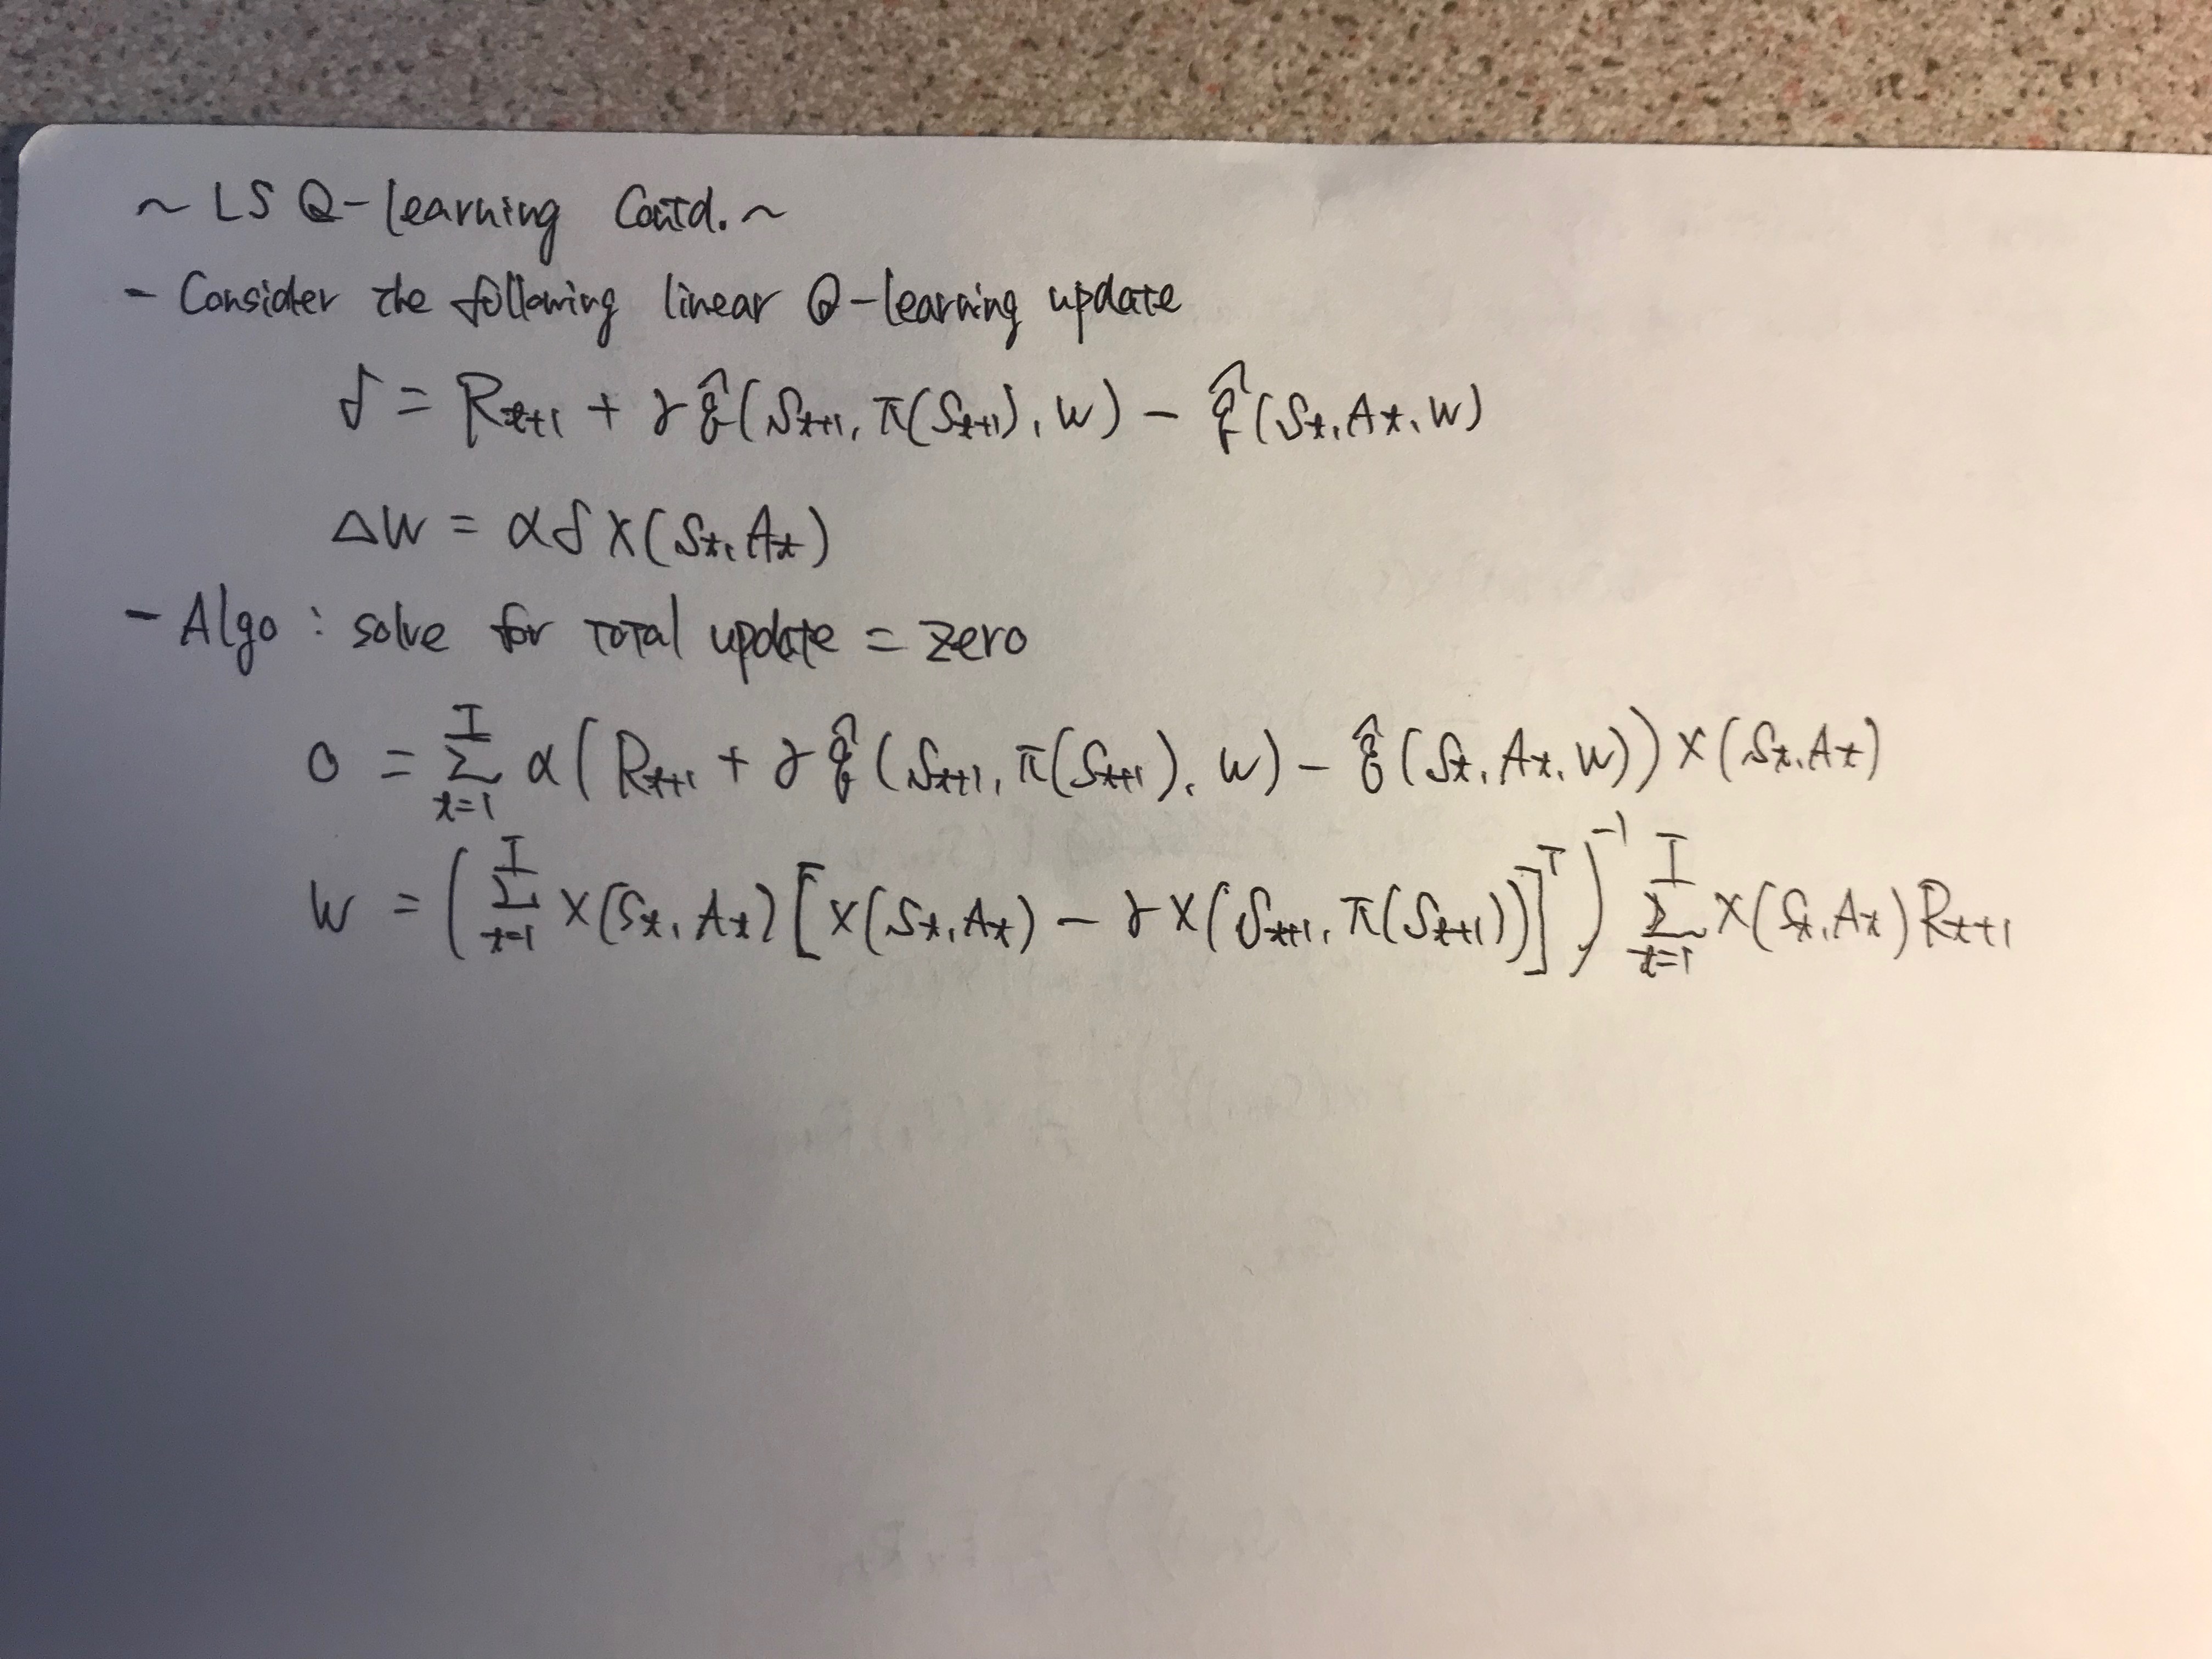 ~ LS Q-learning Contd. ~
- Consider the following linear Q-learning update
δ = R_{t+1} + γ q̂(S_{t+1}, π(S_{t+1}), w) - q̂(S_t, A_t, w)
Δw = α δ x(S_t, A_t)
- Algo : solve for total update = zero
0 = Σ_{t=1}^{T} α(R_{t+1} + γ q̂(S_{t+1}, π(S_{t+1}), w) - q̂(S_t, A_t, w)) x(S_t, A_t)
w = (Σ_{t=1}^{T} x(S_t, A_t)[x(S_t, A_t) - γ x(S_{t+1}, π(S_{t+1}))]^T)^{-1} Σ_{t=1}^{T} x(S_t, A_t) R_{t+1}